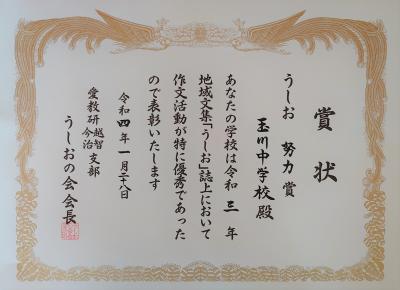 賞状
うしお 努力賞
玉川中学校殿
あなたの学校は令和 三 年
地域文集「うしお」誌上において
作文活動が特に優秀であった
ので表彰いたします
令和四年一月二十八日
愛教研 越智 今治 支部
うしおの会会長